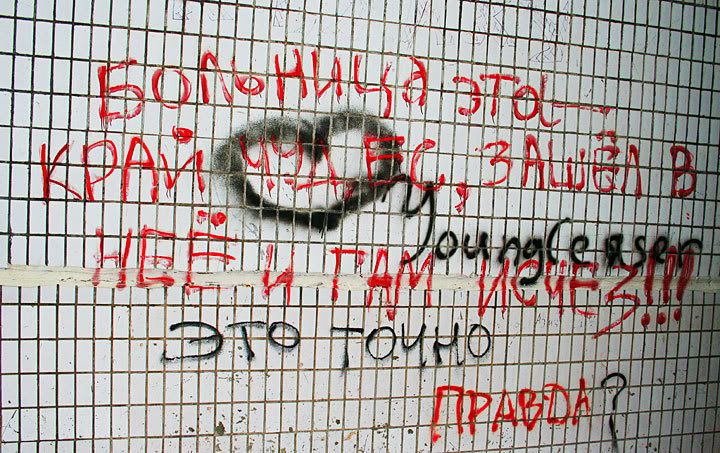 БОЛЬНИЦа ЭТО —
КРАЙ ЧУДЕС, ЗАШЁЛ В
НЕЁ И ТАМ ИСЧЕЗ!!!
ЭТО ТОЧНО
ПРАВДА?